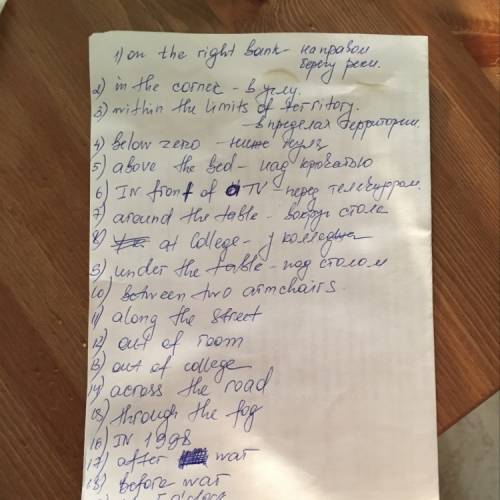 1) on the right bank - на правом
берегу реки.
2) in the corner - в углу.
3) within the limits of territory.
- в пределах территории.
4) below zero - ниже нуля
5) above the bed - над кроватью
6) IN front of TV - перед телевизором.
7) around the table - вокруг стола
8) at College - у колледжа
9) under the table - под столом
10) between two armchairs.
11) along the street
12) out of room
13) out of college
14) across the road
15) through the fog
16) IN 1998
17) after war
18) before war